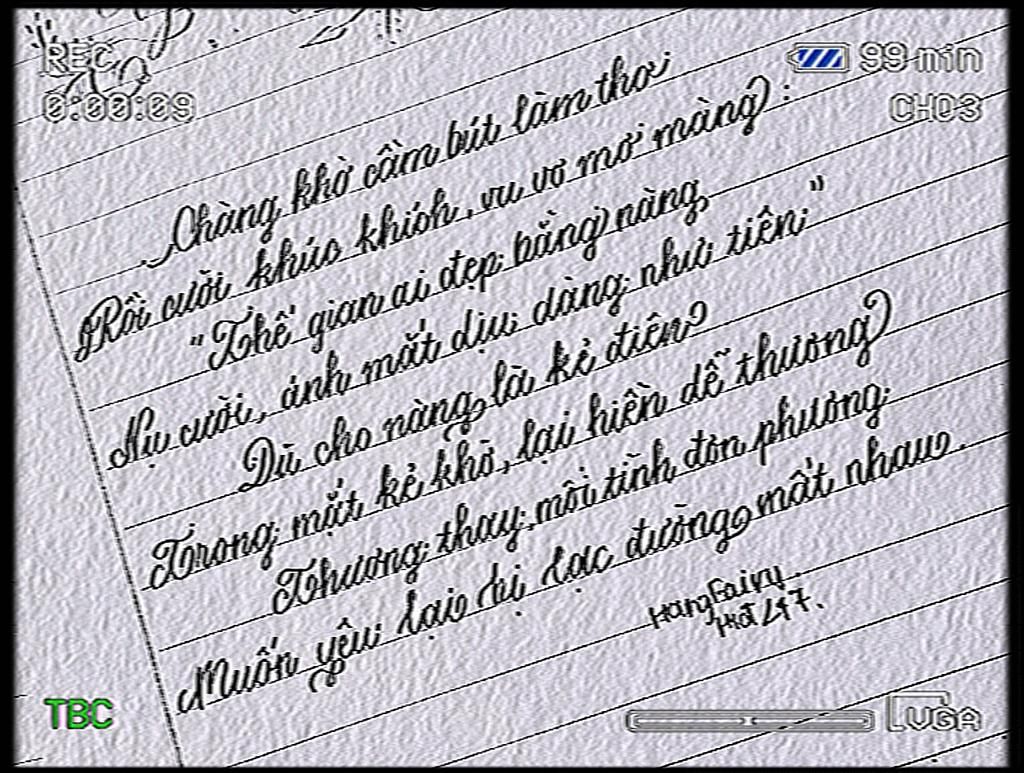 REC
0:00:09
99 min
CH03
Chàng khờ cầm bút làm thơ
Rồi cười khúc khích, vu vơ mơ màng:
"Thế gian ai đẹp bằng nàng
Nụ cười, ánh mắt dịu dàng như tiên"
Dù cho nàng là kẻ điên
Trong mắt kẻ khờ, lại hiền dễ thương
Thương thay, mối tình đơn phương
Muốn yêu lại bị lạc đường mất nhau.
HangFairy.
TBC
VGA